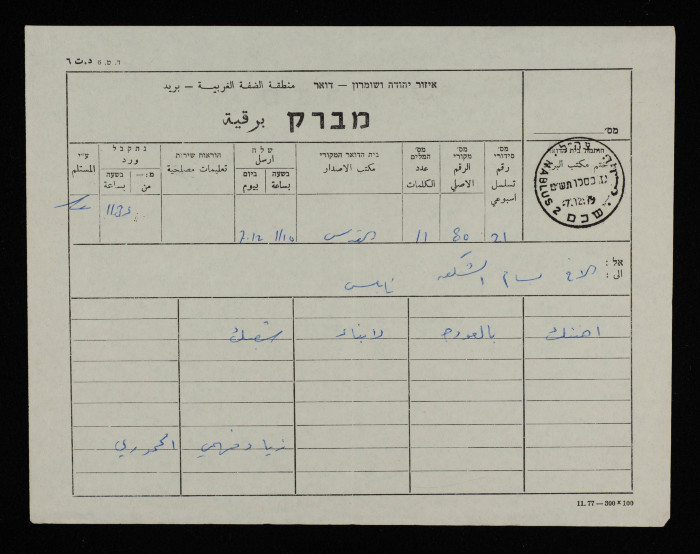 ד. מ. 6 د.ت ٦
איזור יהודה ושומרון – דואר منطقة الضفة الغربية – بريد
מברק برقية
מס'
חתמת בית הדואר
ختم مكتب البريد
NABLUS 2 שכם
יז כסלו תש"ם
-7.12.79
מס' סידורי رقم تسلسل اسبوعي
מס' מקורי الرقم الاصلي
מס' המלים عدد الكلمات
בית הדואר המקורי مكتب الاصدار
שלח ارسل
בשעה بساعة
ביום بيوم
הוראות שירות تعليمات مصلحية
נתקבל ورد
מ:— من
בשעה بساعة
ע"י المستلم
21 80 11 القدس 11/10 7.12 1135
אל:
الى: الاخ بسام الشكعه نابلس
اهنئك بالعودة لابناء شعبك
زياد فهمي الحموري
11.77 — 300 * 100